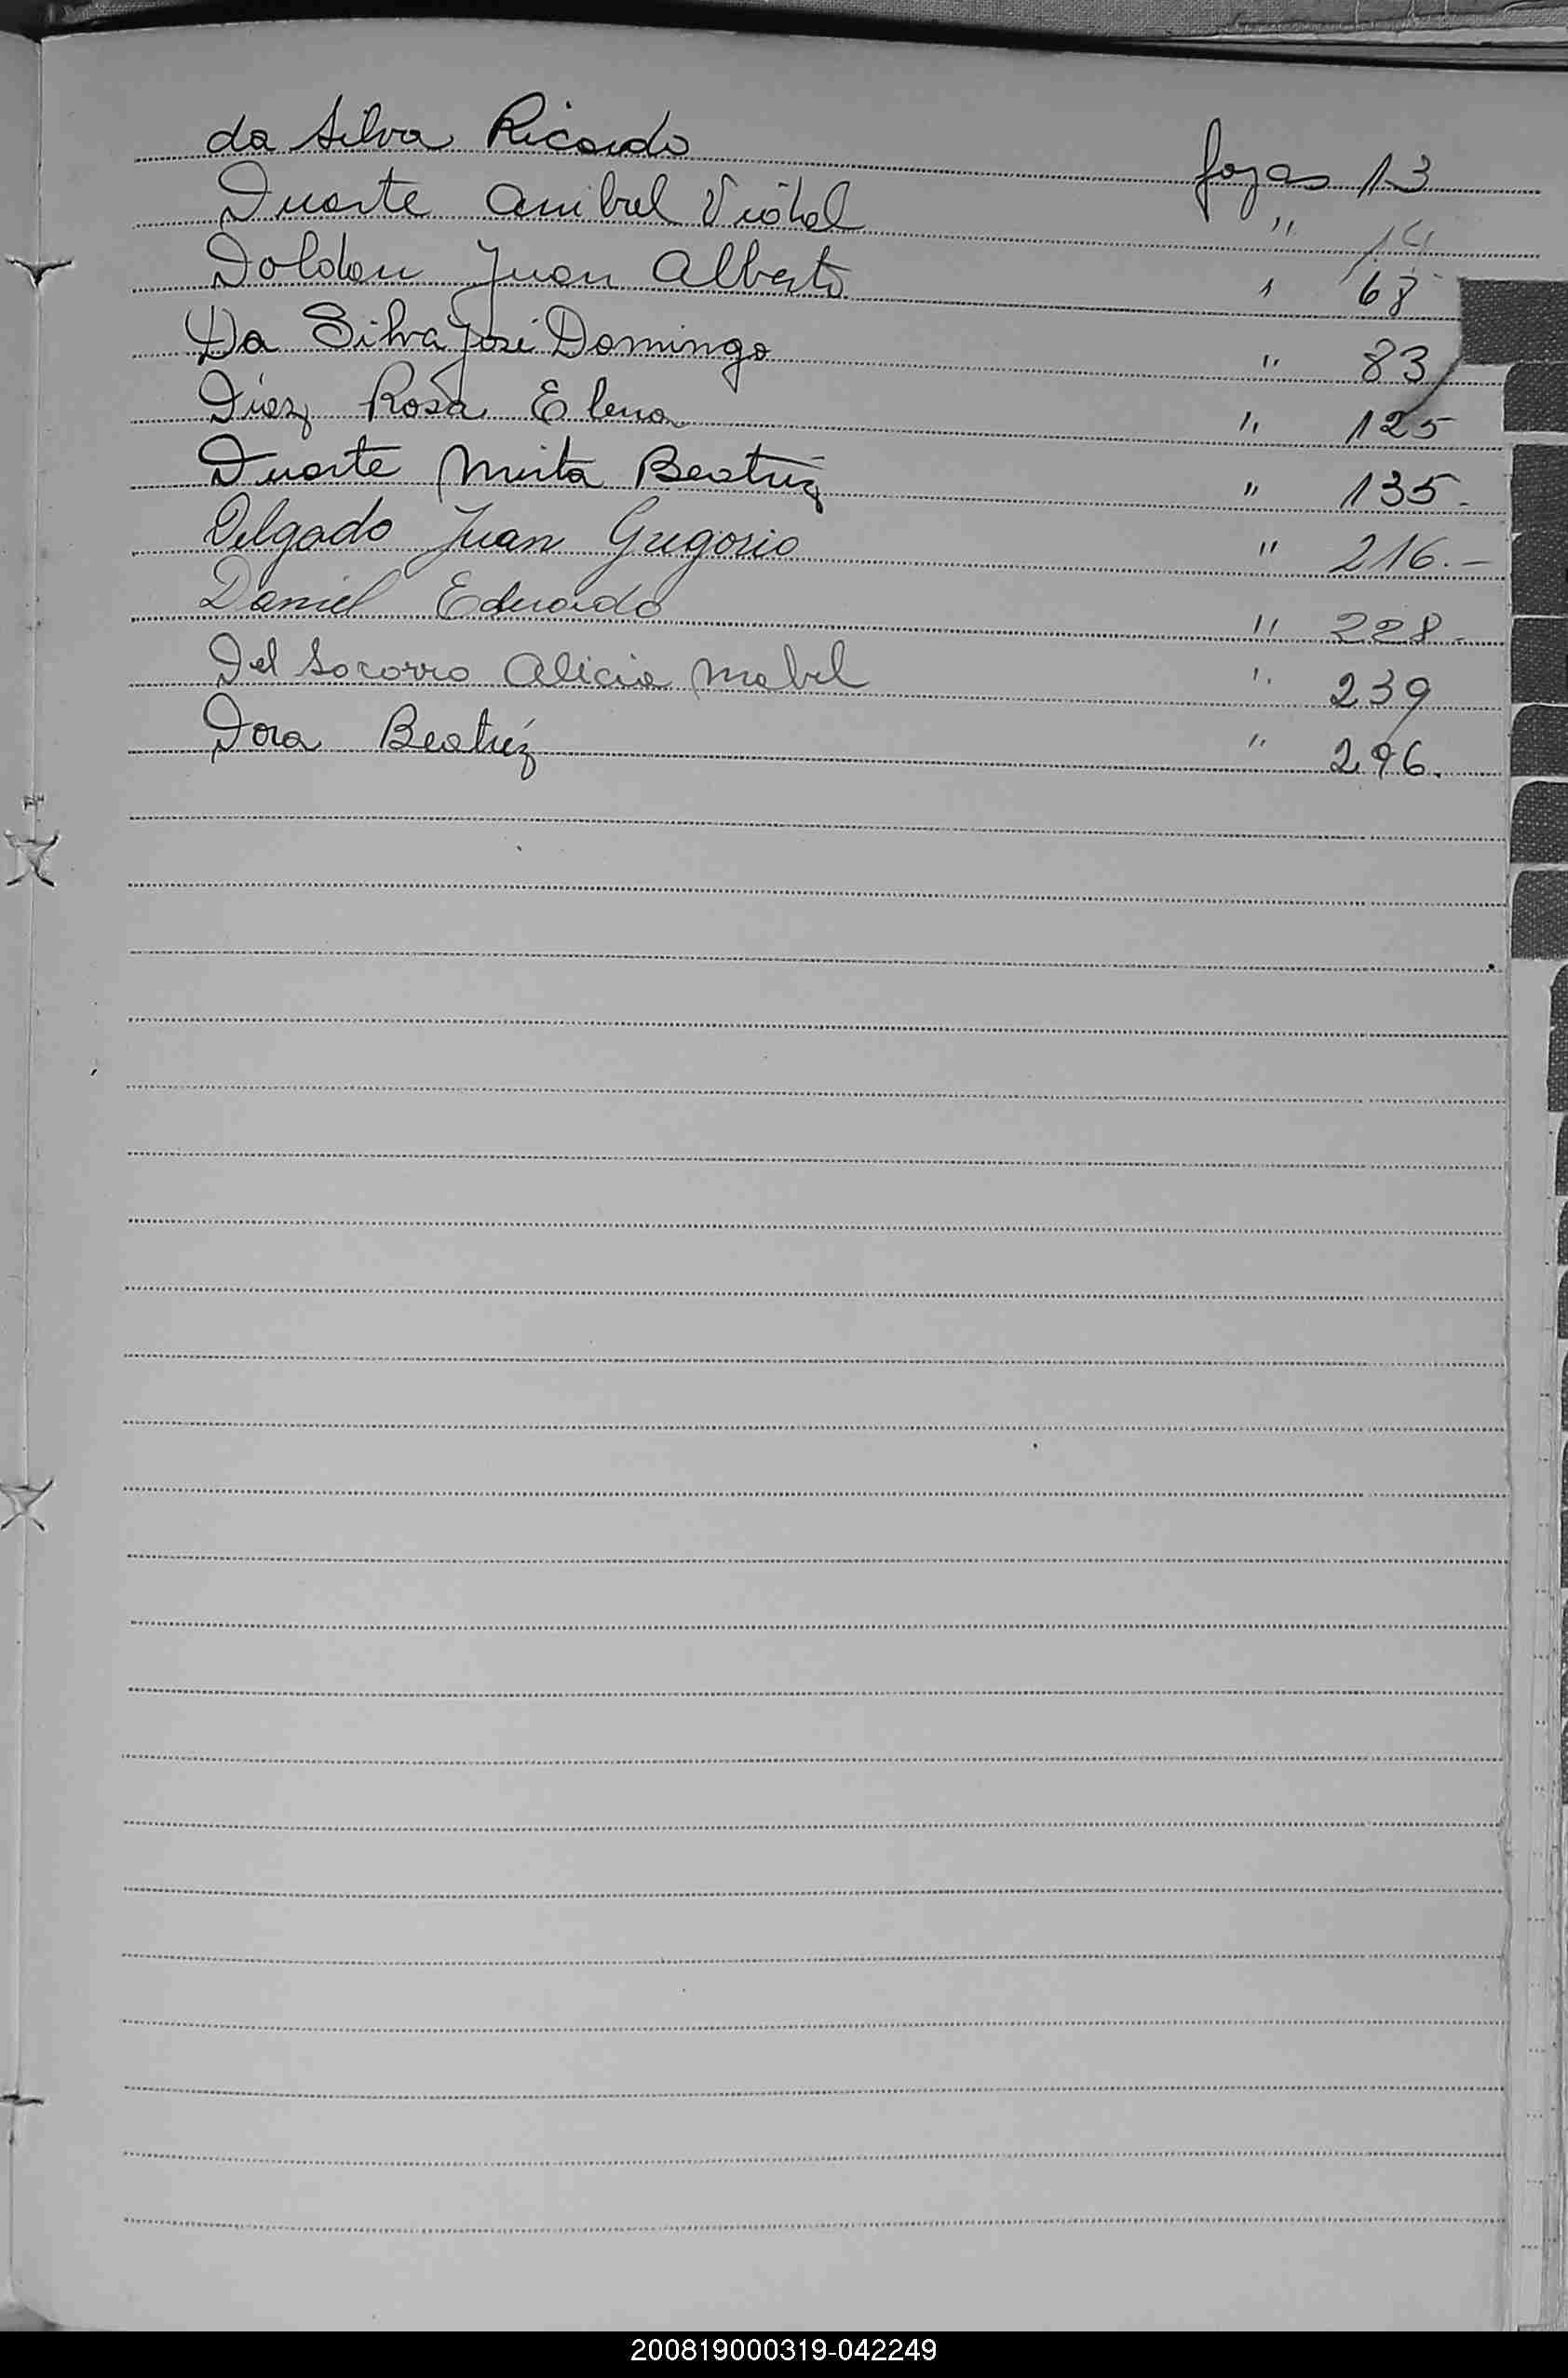 da Silva Ricardo fojas 13
Duarte Anibal Vidal " 14
Doldan Juan Alberto " 68
Da Silva José Domingo " 83
Diaz Rosa Elena " 125
Duarte Mirta Beatriz " 135.
Delgado Juan Gregorio " 216.-
Daniel Eduardo " 228-
Del Socorro Alicia Mabel " 239
Dora Beatríz " 296.
200819000319-042249